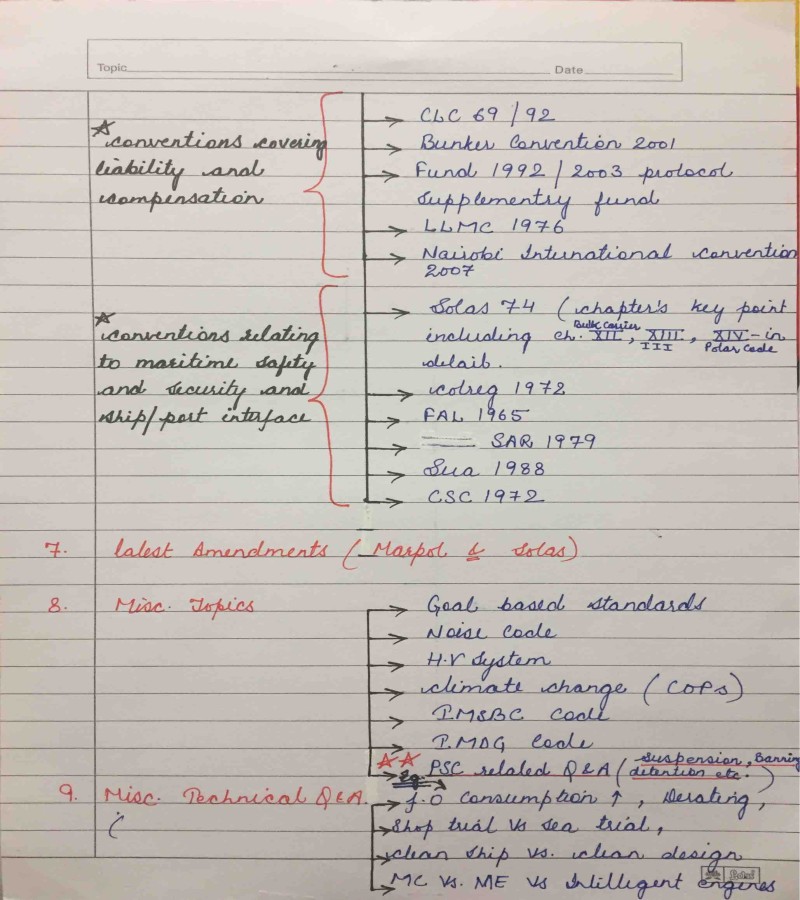 Topic Date
CLC 69 / 92
☆ conventions covering Bunker Convention 2001
liability and Fund 1992 / 2003 protocol
compensation supplementry fund
LLMC 1976
Nairobi International convention
2007
☆ Solas 74 ( chapter's key point
conventions relating including ch. Bulk Carrier XII, XIII, XIV - in
III Polar Code
to maritime safety detail.
and security and colreg 1972
ship/port interface FAL 1965
SAR 1979
Sua 1988
CSC 1972
7. latest Amendments ( Marpol & Solas )
8. Misc. Topics Goal based standards
Noise Code
H.V System
climate change ( COPs )
IMSBC Code
IMDG Code
☆☆ PSC related Q&A ( suspension, Banning
detention etc. )
9. Misc. Technical Q&A. f.o consumption ↑, Derating,
( shop trial Vs sea trial,
clean ship vs. clean design
MC vs. ME vs Intilligent engines